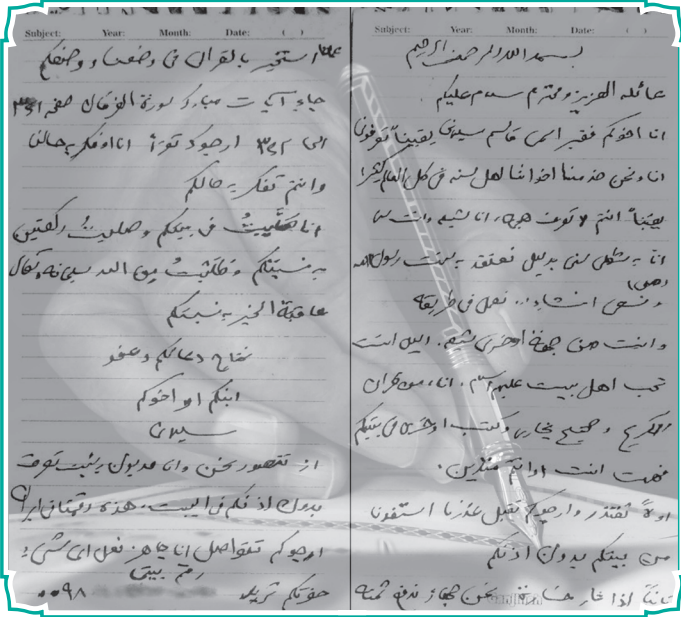 Subject: Year: Month: Date: ( )
بسم الله الرحمن الرحيم
عائله العزيز ومحترم سلام عليكم
انا اخوكم فقير اسمى قاسم سليمانى يقيناً تعرفونا
انا ونحن خدمنا اخواننا اهل سنه فى كل العالم كثيراً
يقيناً انتم لا تعرف هم، انا شيعه وانت سنى
انا بشكلى سنى بدليل نعتقد بسنت رسول الله (ص)
و نسعى انشاءالله نعمل فى طريقه
وانت من جهة اخرى شيعه. اليس انت
تحب اهل بيت عليهم السلام. انا من قران
الكريم و صحيح بخارى وكتب اخرى فى بيتكم
فهمت انت انسان متدين.
اولاً نعتذر وارجوكم تقبل عذرنا استفدنا
من بيتكم بدون اذنكم
ثانياً اذا صار خسارة نحن جاهز ندفع ثمنه
Subject: Year: Month: Date: ( )
انا استخير بالقران فى وضعنا ووضعكم
جاء آيات مباركه سورة الفرقان صفحه ٣٦١
الى ٣٦٢ ارجوك تقرأ انا افكر بحالنا
وانتم تفكر بحالكم
انا صلّيتُ فى بيتكم وصليت ركعتين
به نسبتكم وطلبتُ من الله سبحانه وتعالى
عاقبة الخير به نسبتكم
نحتاج دعائكم وعفو
ابنكم او اخوكم
سليمانى
بدون اذنكم فى البيت. هذه رقمنا فى ايران
ارجوكم تتواصل انا جاهز نعمل اى شىء
رقم بيتى
حقوقكم تريد ٠٠٩٨